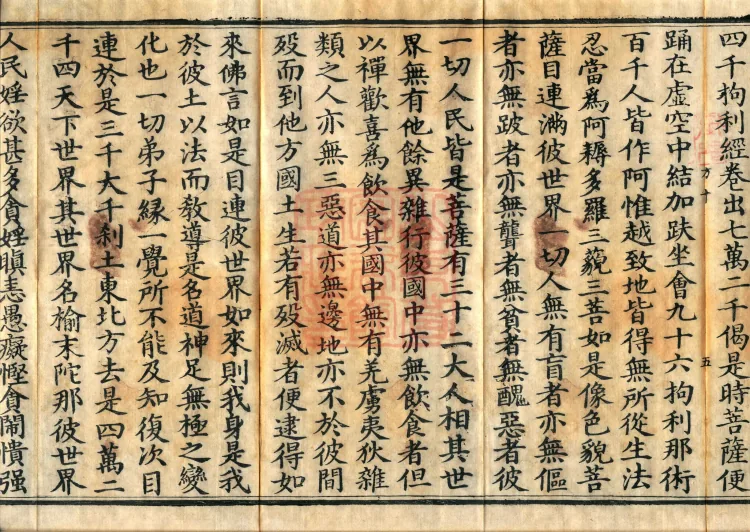 四千拘利經卷出七萬二千偈是時菩薩便
踊在虛空中結加趺坐會九十六拘利那術
方十 五
百千人皆作阿惟越致地皆得無所從生法
忍當爲阿耨多羅三藐三菩如是像色貌菩
薩目連滿彼世界一切人無有盲者亦無傴
者亦無跛者亦無聾者無貧者無醜惡者彼
一切人民皆是菩薩有三十二大人相其世
界無有他餘異雜行彼國中亦無飲食者但
以禪歡喜爲飲食其國中無有羌虜夷狄雜
類之人亦無三惡道亦無邊地亦不於彼間
歿而到他方國土生若有歿滅者便逮得如
來佛言如是目連彼世界如來則我身是我
於彼土以法而教導是名道神足無極之變
化也一切弟子緣一覺所不能及知復次目
連於是三千大千刹土東北方去是四萬二
千四天下世界其世界名榆末陀那彼世界
人民婬欲甚多貪婬瞋恚愚癡慳貪鬧憒强